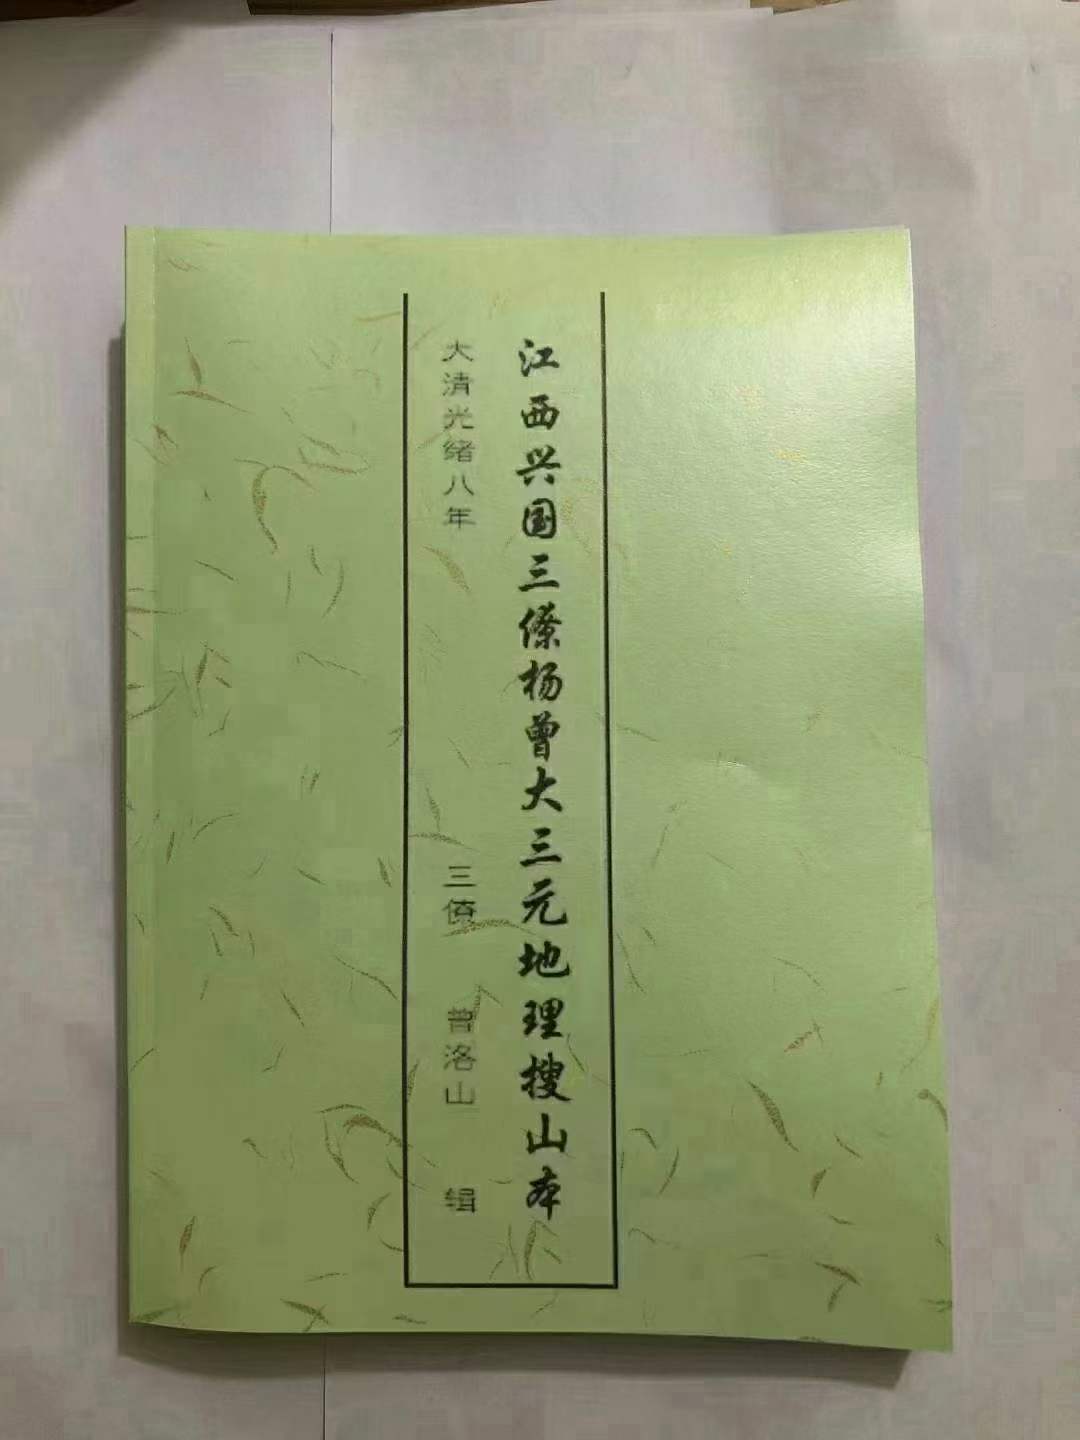 江西兴国三僚杨曾大三元地理搜山本
大清光绪八年 三僚 曾洛山 辑